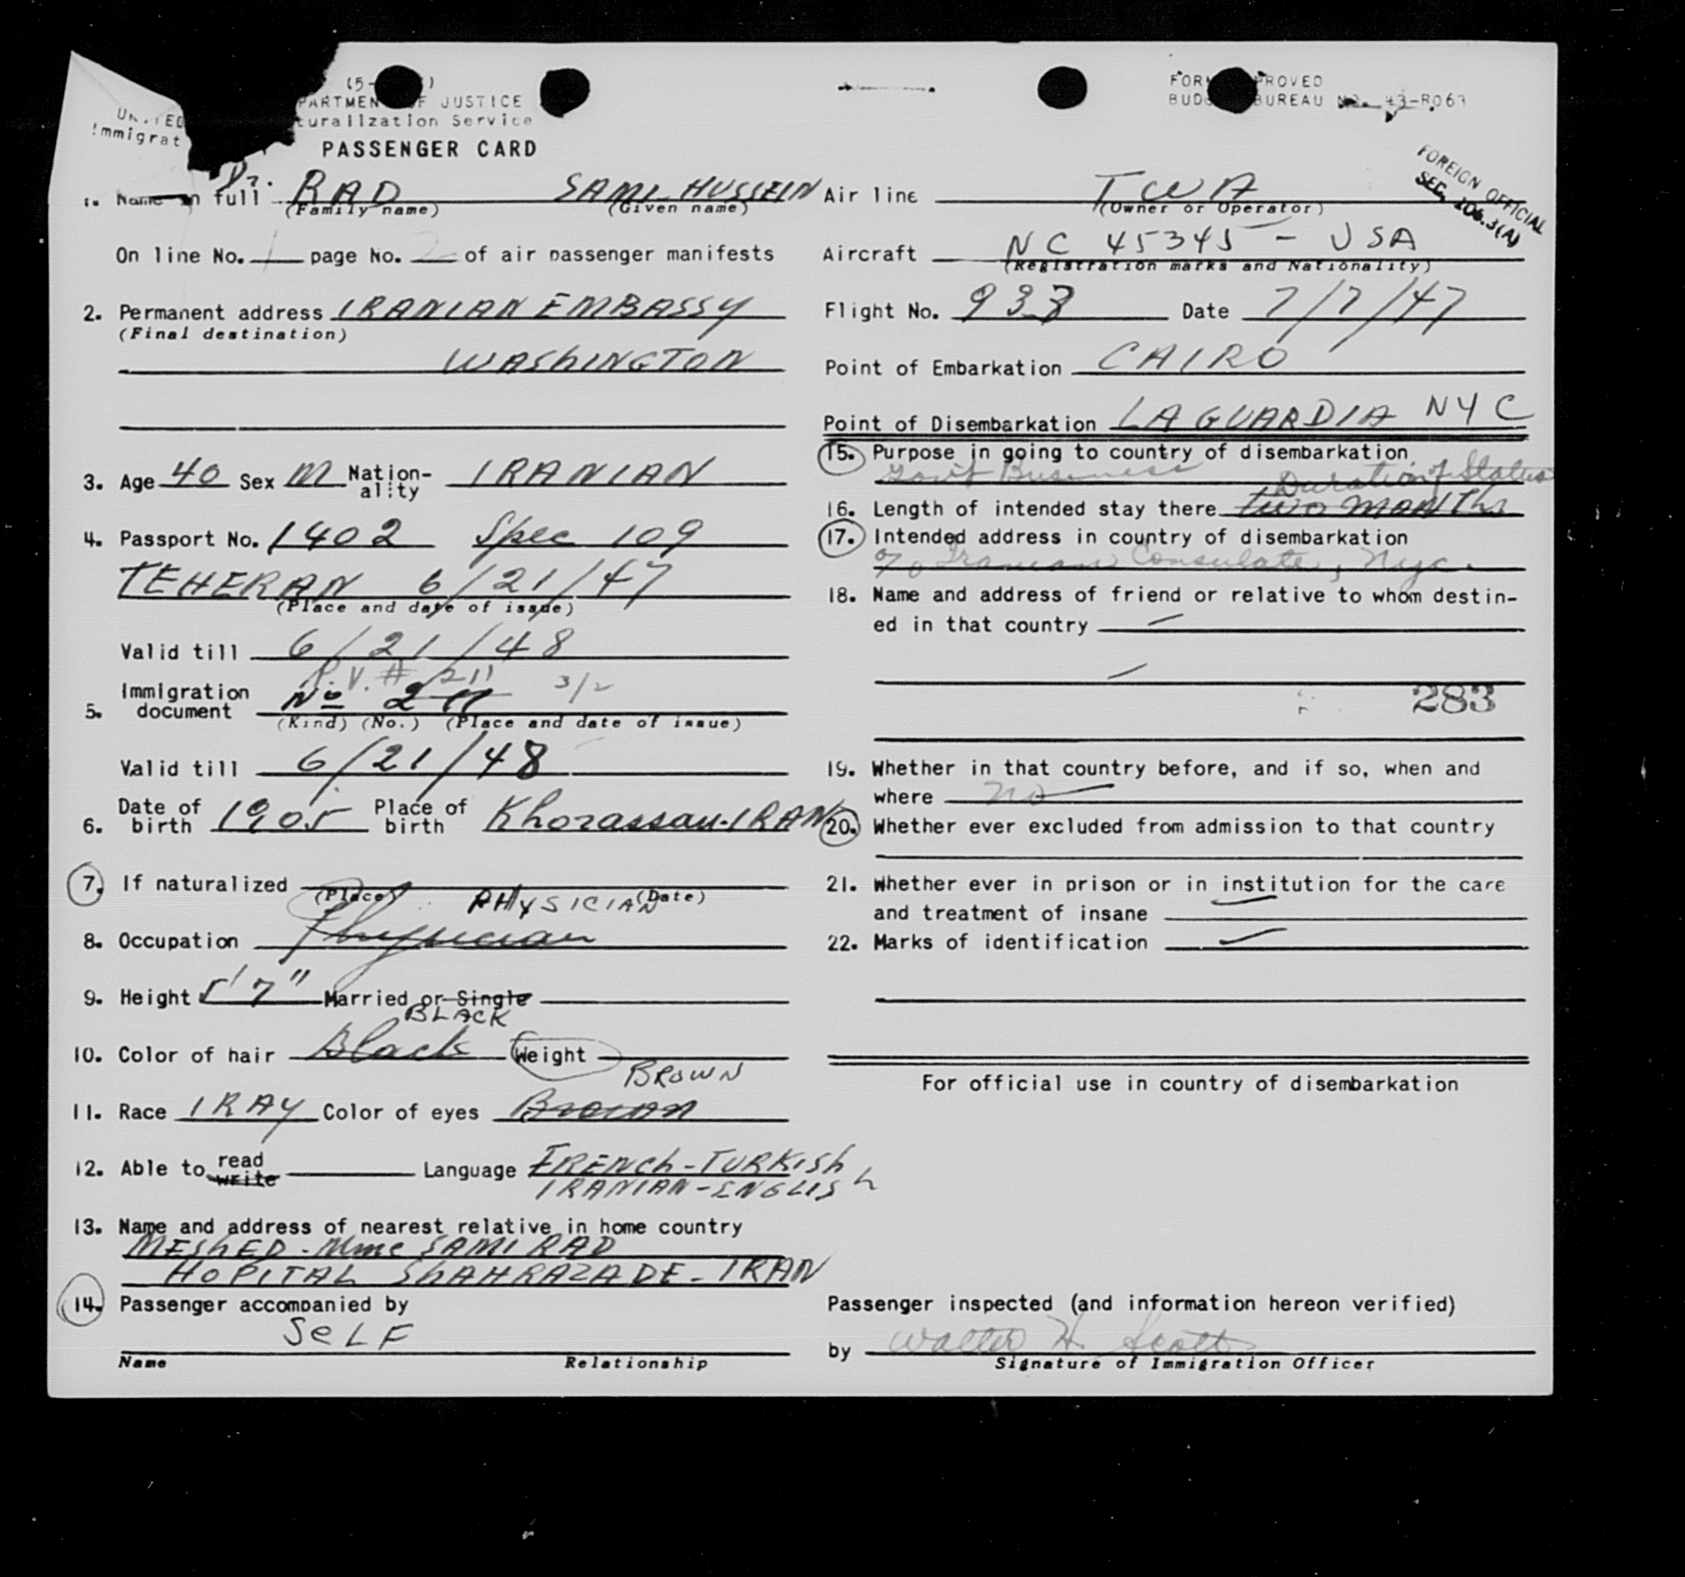 UNITED
Immigrat
PARTMEN F JUSTICE
turalization Service
PASSENGER CARD
FOR PROVED
BUD BUREAU No. 43-R067
FOREIGN OFFICIAL
SEC. 106.3(A)
1. Name in full Dr. RAD SAMI-HUSSEIN
(Family name) (Given name)
On line No. 1 page No. 2 of air passenger manifests
2. Permanent address IRANIAN EMBASSY
(Final destination)
WAShINGTON
3. Age 40 Sex M Nation-ality IRANIAN
4. Passport No. 1402 Spec 109
TEHERAN 6/21/47
(Place and date of issue)
Valid till 6/21/48
P.V. # 211 3/2
5. Immigration document No 211
(Kind) (No.) (Place and date of issue)
Valid till 6/21/48
6. Date of birth 1905 Place of birth Khorassan-IRAN
7. If naturalized
(Place) (Date)
PHYSICIAN
8. Occupation Physician
9. Height 5'7" Married or Single
BLACK
10. Color of hair Black Weight
BROWN
11. Race IRAY Color of eyes Brown
12. Able to read write Language FRENCh-TURKISh
IRANIAN-ENGLISh
13. Name and address of nearest relative in home country
MEShED-Mme SAMI RAD
HOPITAL ShAHRAZADE-IRAN
14. Passenger accompanied by
SeLF
Name Relationship
Air line TWA
(Owner or Operator)
Aircraft NC 45345 - USA
(Registration marks and Nationality)
Flight No. 933 Date 7/7/47
Point of Embarkation CAIRO
Point of Disembarkation LAGUARDIA NYC
15. Purpose in going to country of disembarkation
Gov't Business
Duration of Status
16. Length of intended stay there two months
17. Intended address in country of disembarkation
c/o Iranian Consulate, Nyc.
18. Name and address of friend or relative to whom destin-
ed in that country
283
19. Whether in that country before, and if so, when and
where no
20. Whether ever excluded from admission to that country
21. Whether ever in prison or in institution for the care
and treatment of insane
22. Marks of identification
For official use in country of disembarkation
Passenger inspected (and information hereon verified)
by Walter H. Scott
Signature of Immigration Officer